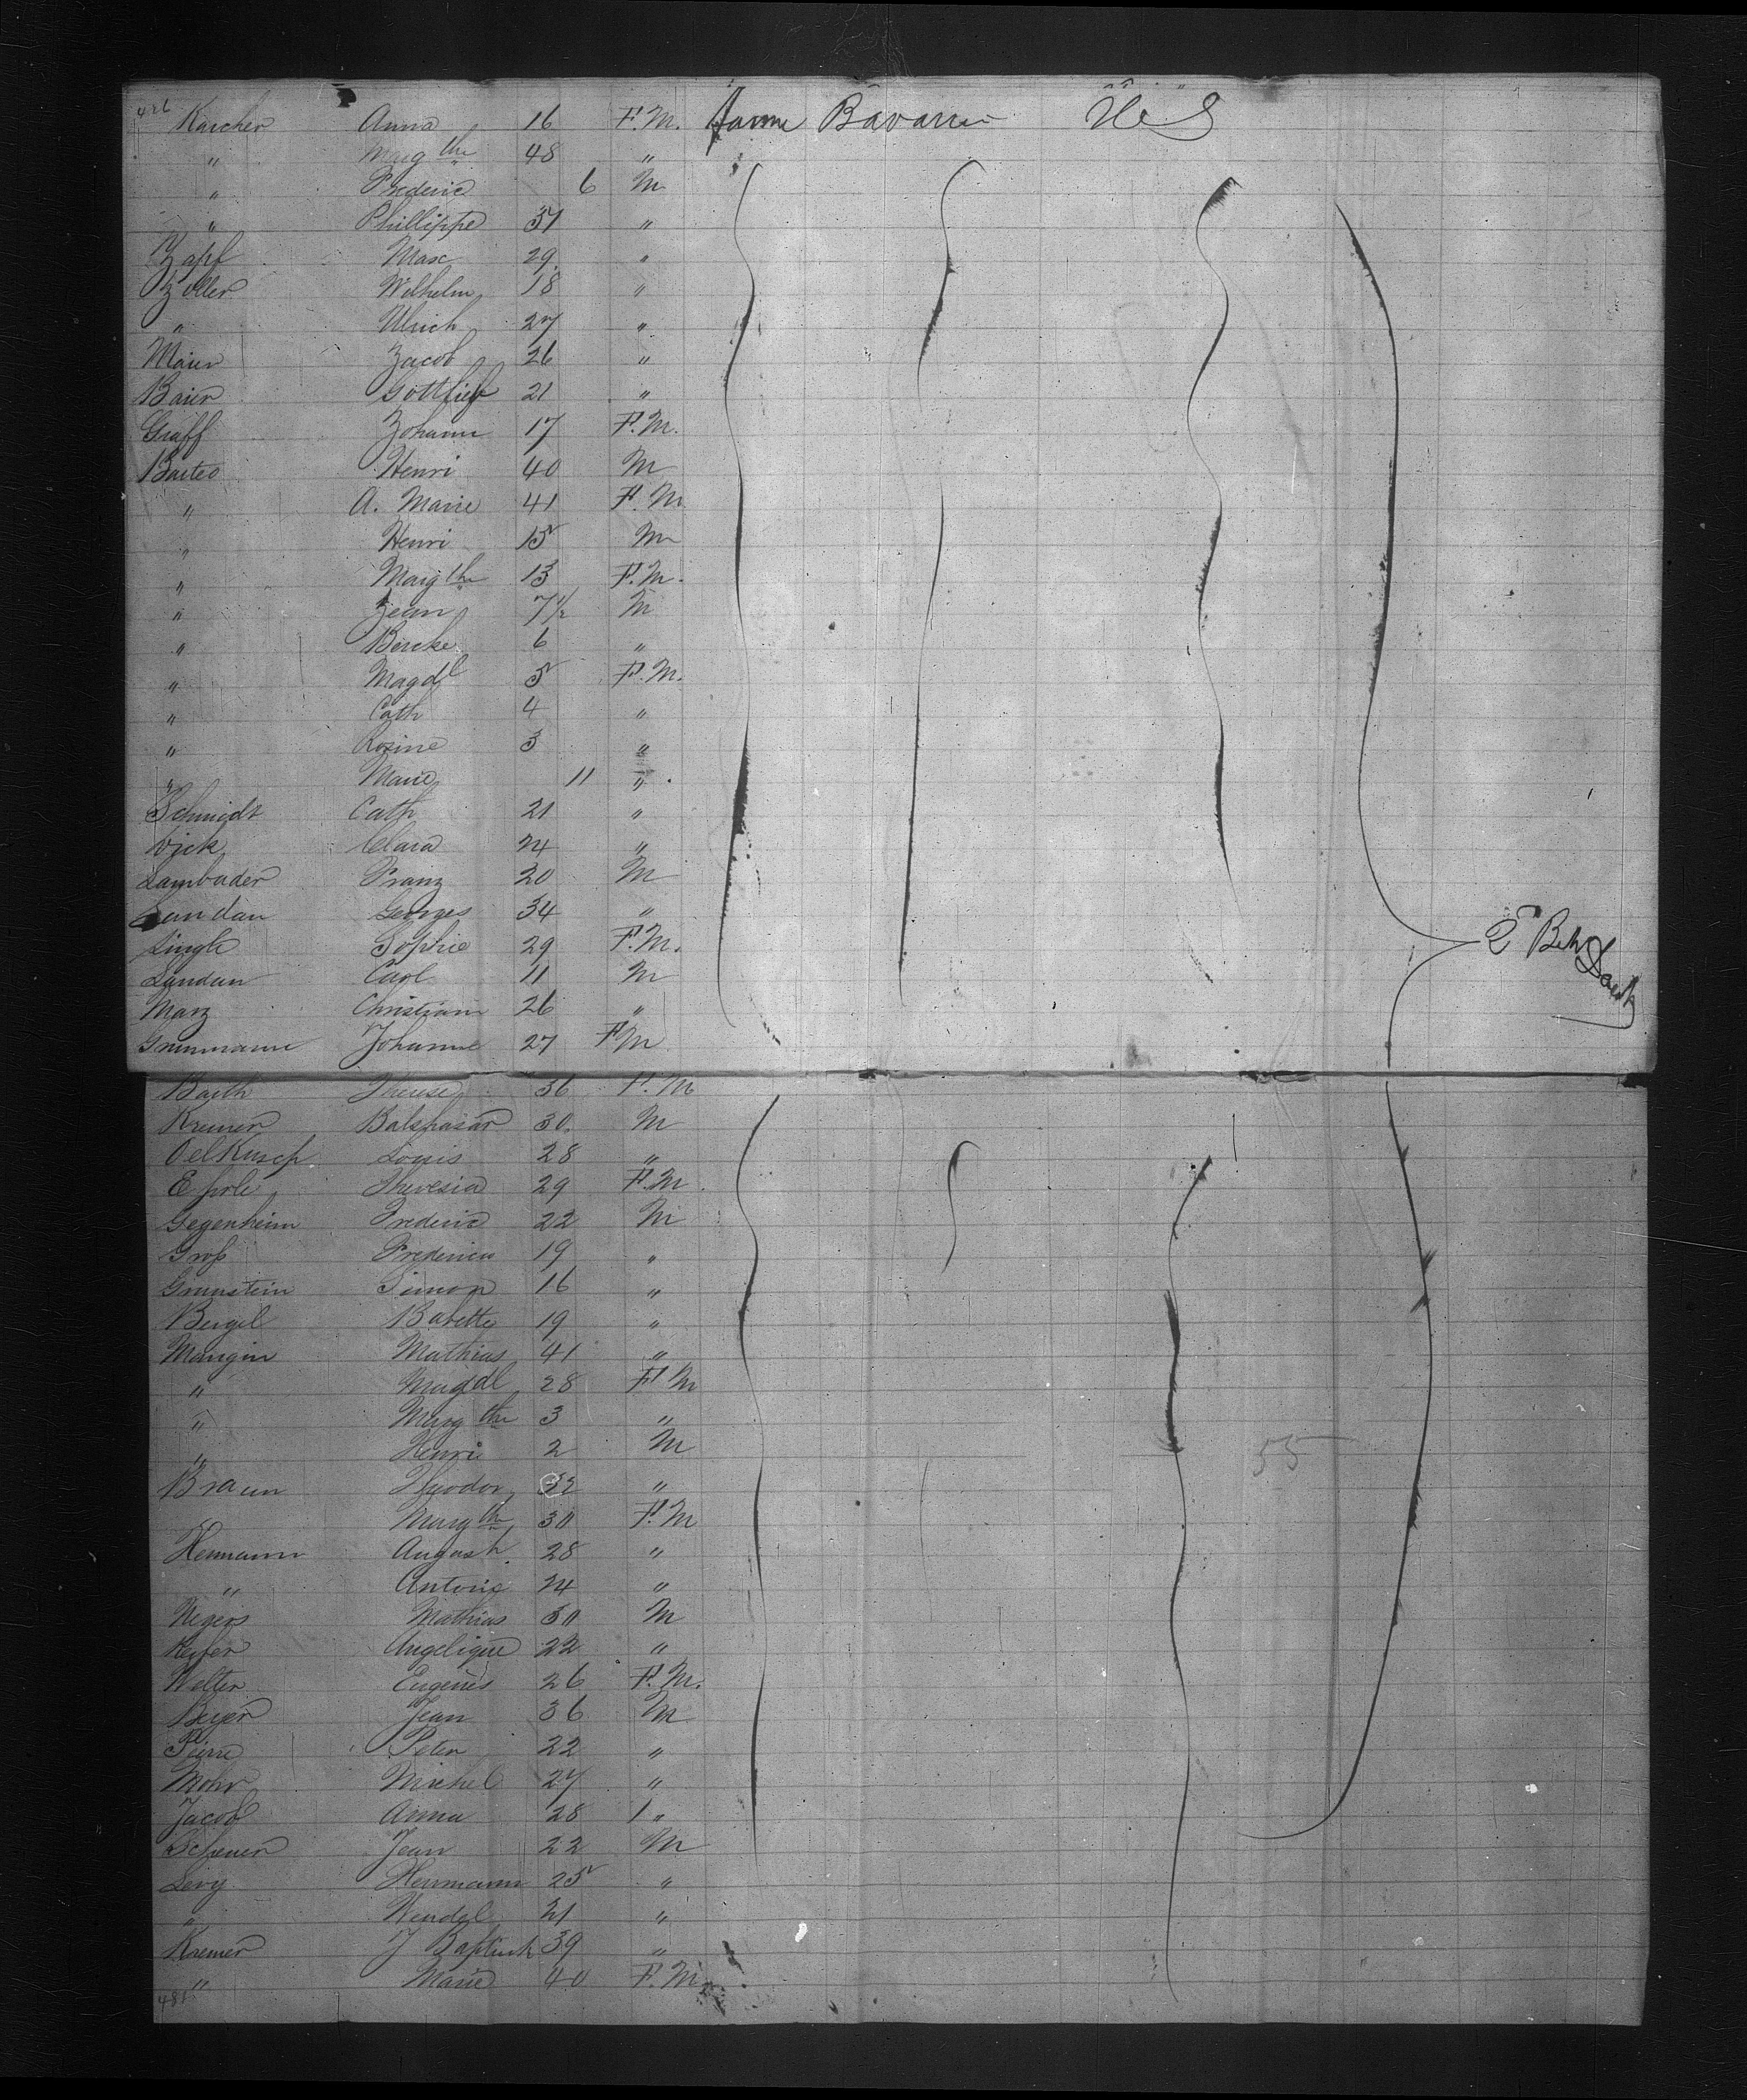 Karcher Anna 16 F. M. Farme Bavaria U S
" Marg the 48 "
" Frederic 6 M
" Phillippe 37 "
Zapf Max 29 "
Zoller Wilhelm 18 "
" Ulrich 27 "
Maier Jacob 26 "
Baier Gottlieb 21 "
Graff Johann 17 F. M.
Bartes Henri 40 M
" A. Marie 41 F. M
" Henri 15 M
" Marg the 13 F. M.
" Jean 7 1/2 M
" 6 "
" Magdl 5 F. M.
" Cath 4 "
" Rosine 3 "
" Marie 11 "
Schmidt Cath 21 "
Vick Clara 24 "
Lambader Franz 20 M
Landau Georges 34 "
Lingle Sophie 29 F. M.
Landau Carl 11 M
Marz Christian 26 "
Grunmann Johanne 27 F M
Barth Therese 36 F. M
Kremer Balthasar 30 M
Oelkusch Louis 28 "
Theresia 29 F. M
Gegenheim Frederic 22 M
Groß Frederica 19 "
Grunstein Simon 16 "
Bergel Babette 19 "
Mangin Mathias 41 "
" Magdl 28 F M
" Marg the 3 "
" Henri 2 M
55
Braun Theodor 32 "
Marg the 30 F. M
Hermann August 28 "
" Antoine 24 "
Mathias 30 M
Angelique 22 "
Welter Eugenes 26 F. M.
Beyer Jean 36 M
Pierre Peter 22 "
Mohr Michel 27 "
Jacob Anna 28 1 "
Scheuer Jean 22 M
Levy Hermann 25 "
" Wendel 21 "
Kremer J Baptist 39 "
" Marie 40 F. M.